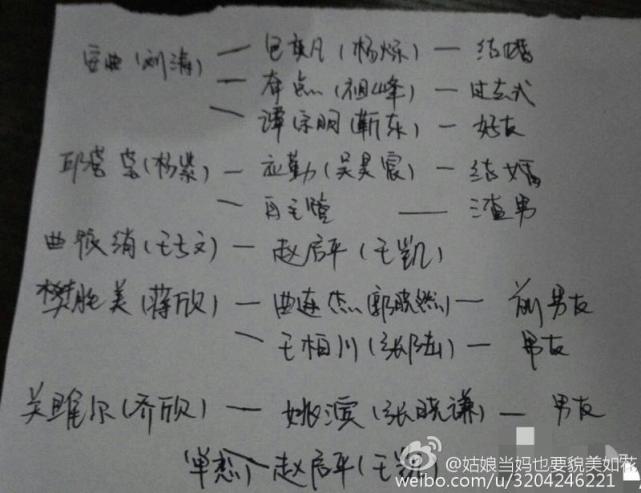 安曲(刘涛) — 包奕凡(杨烁) — 结婚
— 奇点(祖峰) — 过去式
— 谭宗明(靳东) — 好友
邱莹莹(杨紫) — 应勤(吴昊宸) — 结婚
— 白主管 — 渣男
曲筱绡(王子文) — 赵启平(王凯)
樊胜美(蒋欣) — 曲连杰(郭晓然) — 前男友
— 王柏川(张陆) — 男友
关雎尔(乔欣) — 姚滨(张晓谦) — 男友
(单恋) 赵启平(王凯)
@姑娘当妈也要貌美如花
weibo.com/u/3204246221